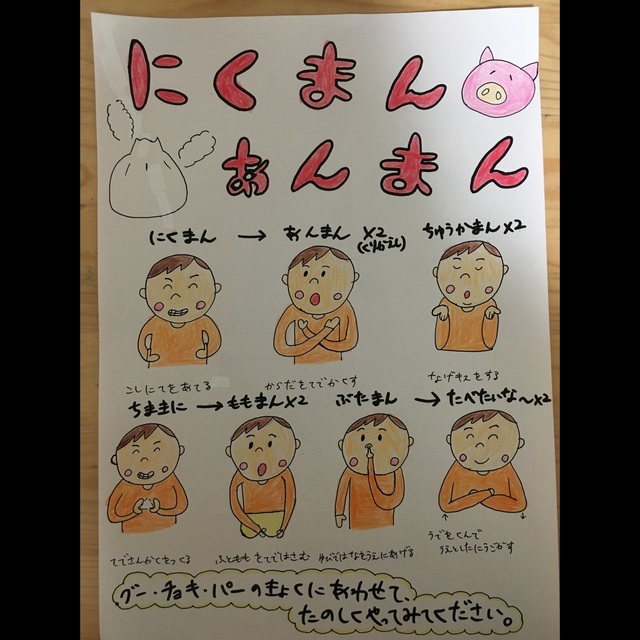 にくまん
あんまん
にくまん → あんまん ×2 ちゅうかまん×2
(くりかえし)
こしにてをあてる からだをてでかくす なげキスをする
ちまきに → ももまん×2 ぶたまん → たべたいな～×2
てでさんかくをつくる ふとももをてではさむ ゆびではなをうえにあげる うでをくんで
うえとしたにうごかす
グー・チョキ・パーのきょくにあわせて、
たのしくやってみてください。